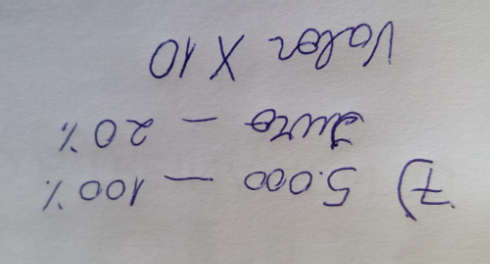 7) 5.000 — 100%
Juro — 20%
Valor X 10